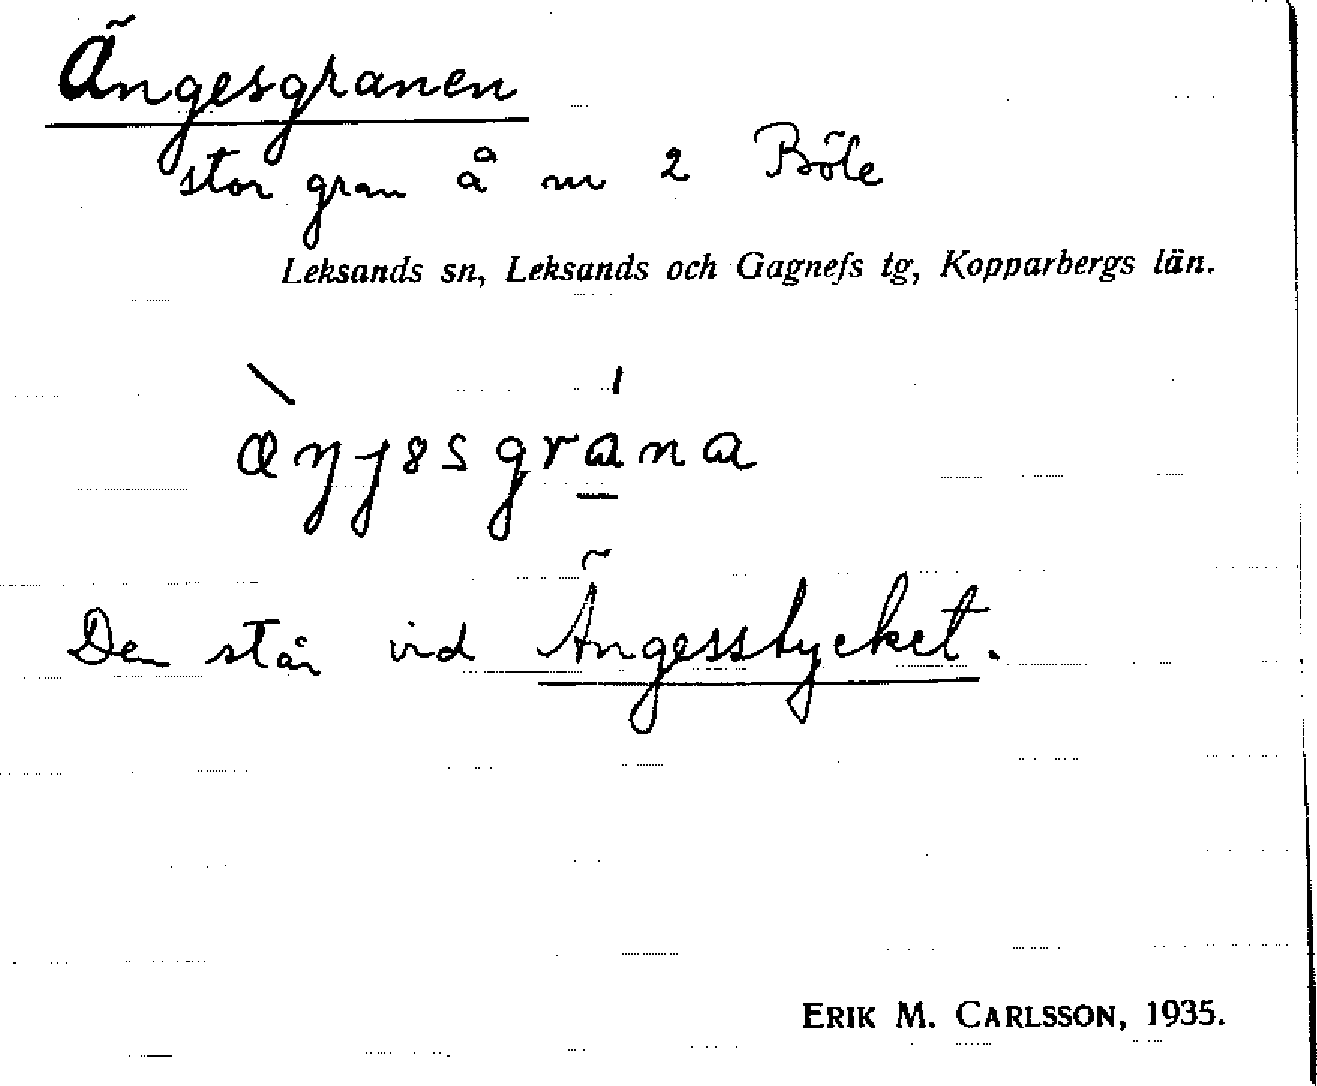 Ängesgranen
stor gran å m 2 Böle
Leksands sn, Leksands och Gagnefs tg, Kopparbergs län.
Den står vid Ängesstycket.
ERIK M. CARLSSON, 1935.